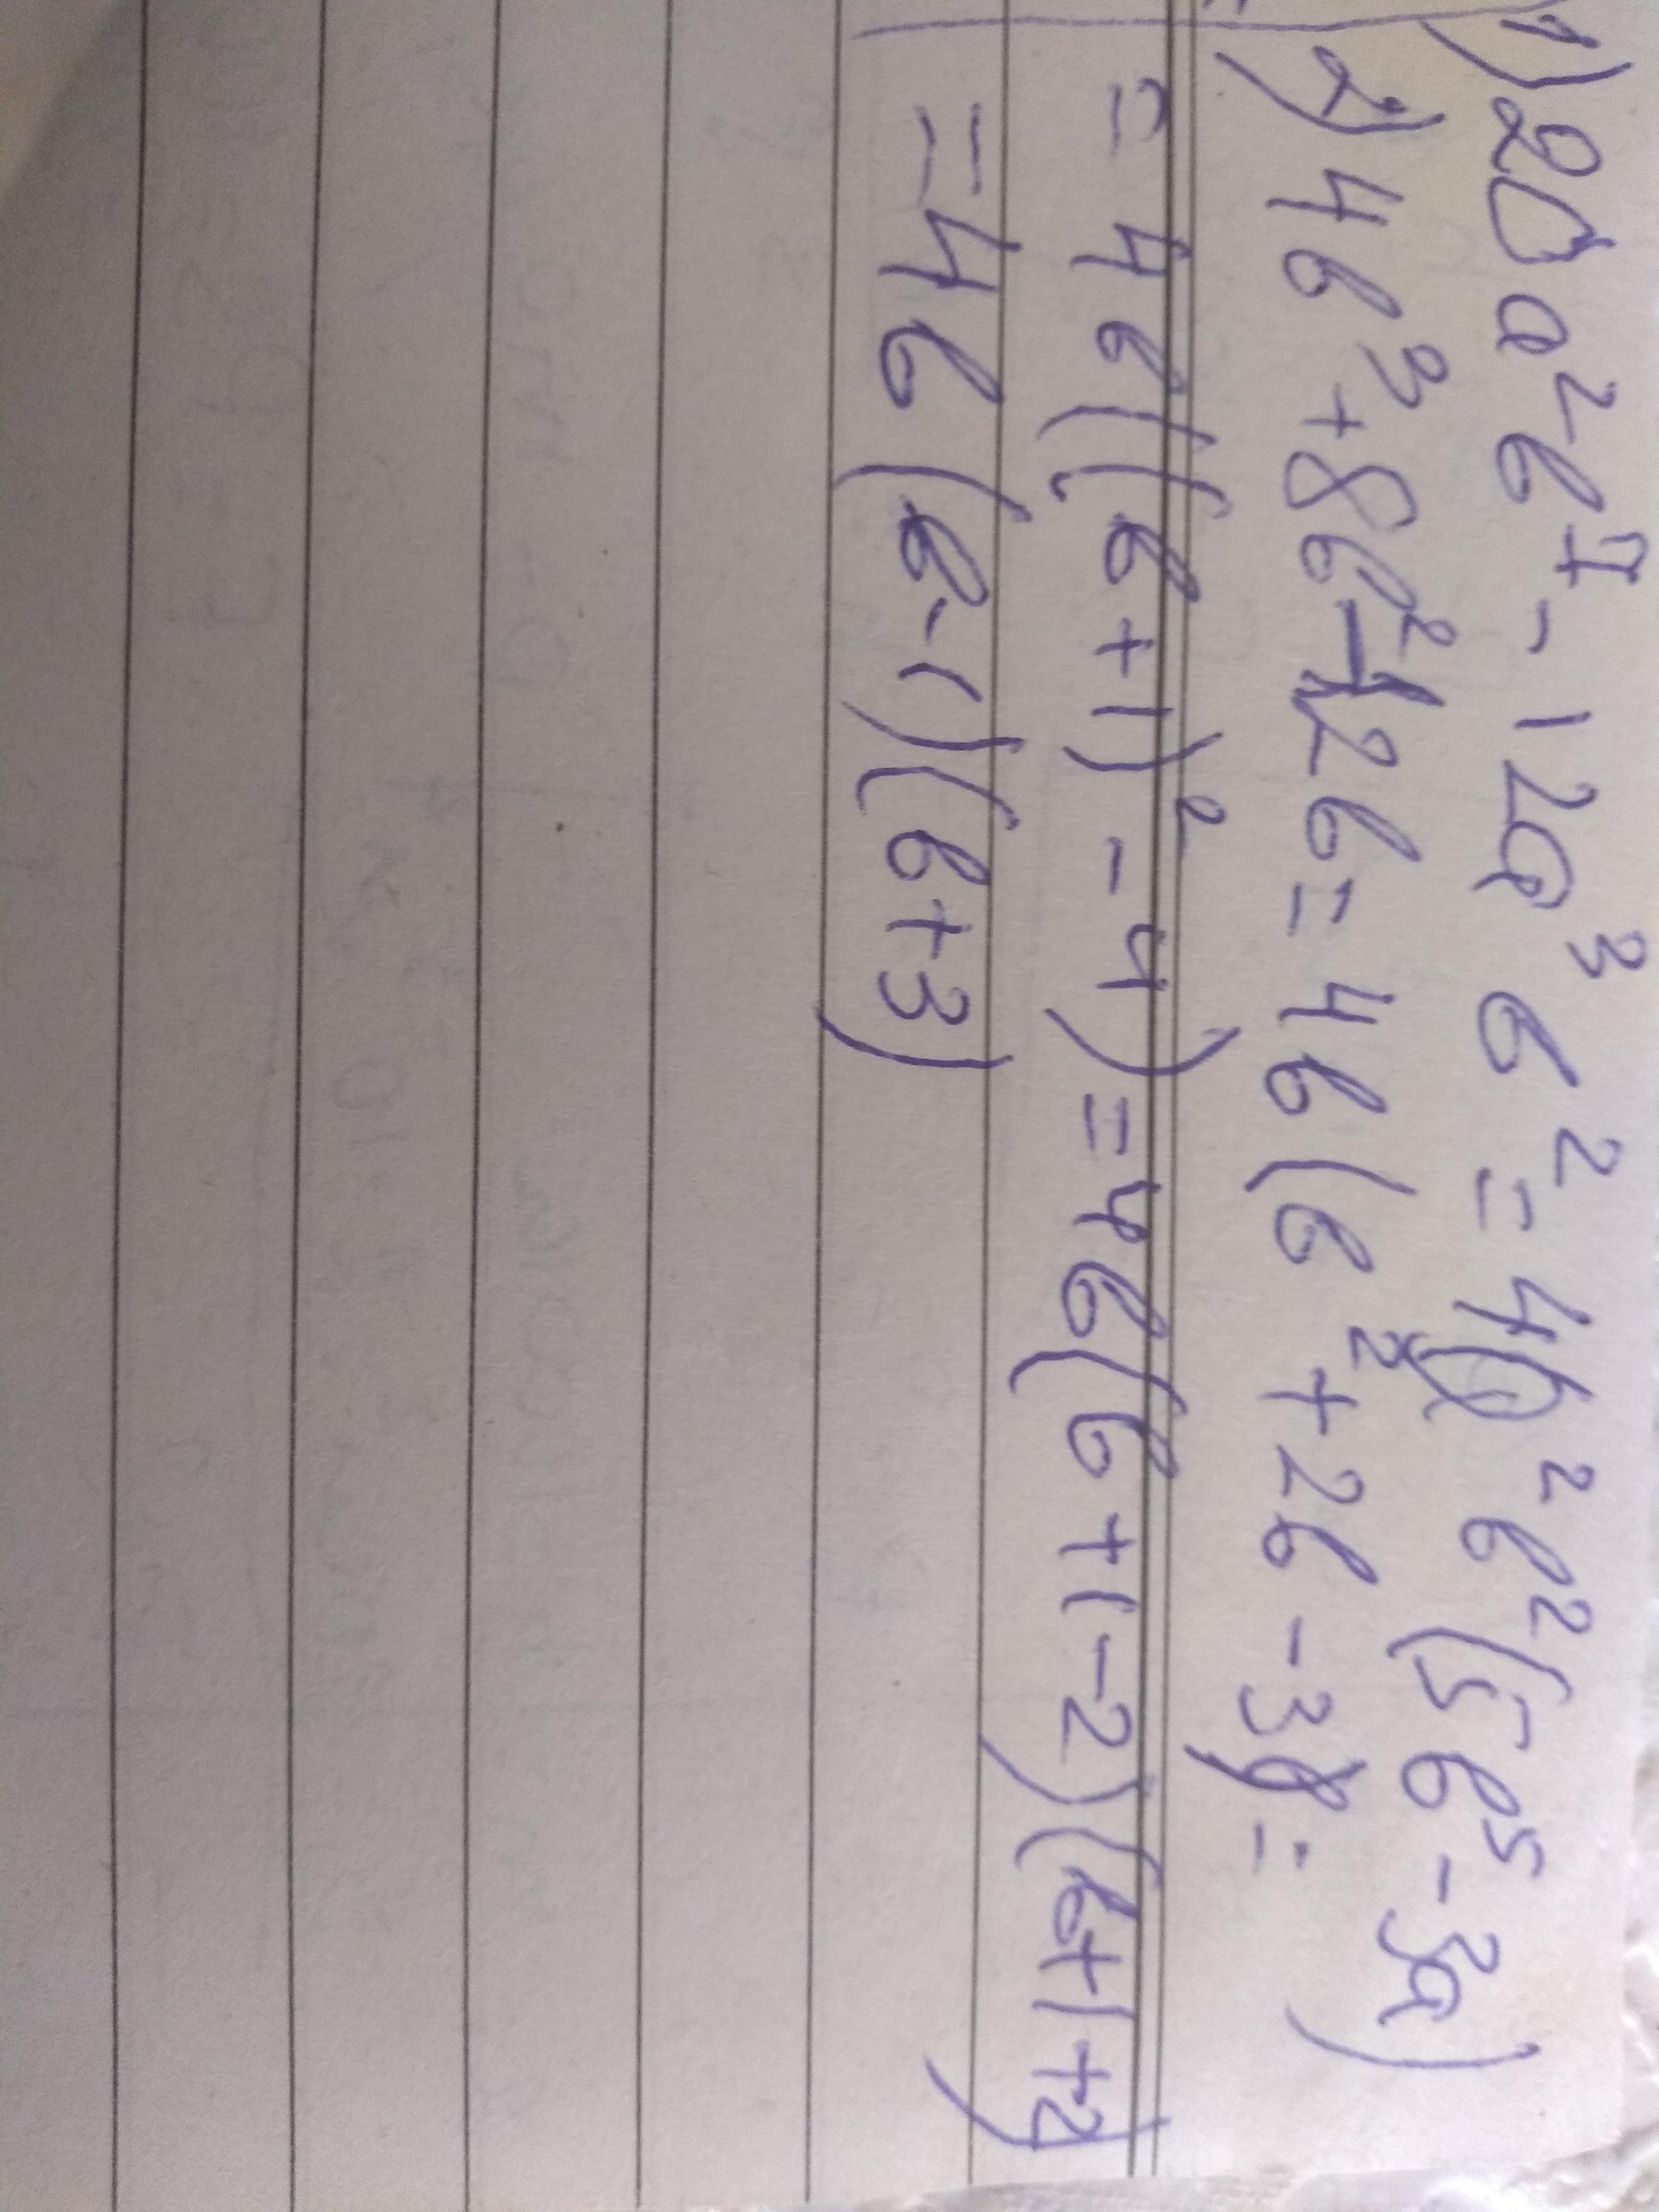 1) 20a²b⁷ - 12a³b² = 4a²b²(5b⁵ - 3a)
2) 4b³ + 8b² - 12b = 4b(b² + 2b - 3) =
= 4b((b+1)² - 4) = 4b(b+1-2)(b+1+2)
= 4b(b-1)(b+3)